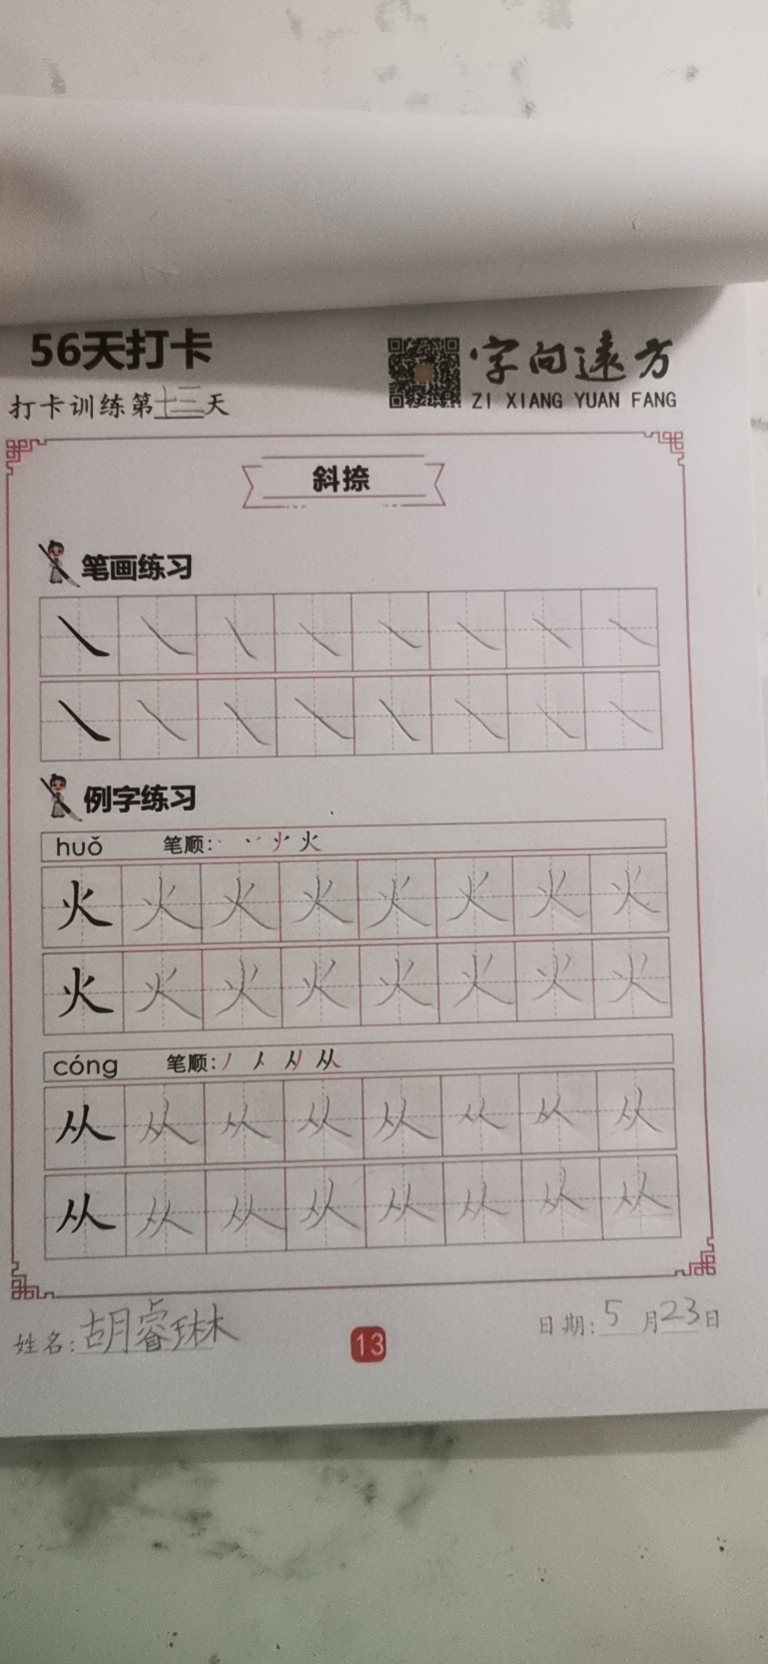 56天打卡
字向遠方
ZI XIANG YUAN FANG
打卡训练第十三天
斜捺
笔画练习
例字练习
huǒ 笔顺: 火
火 火 火 火 火 火 火 火
火 火 火 火 火 火 火 火
cóng 笔顺: 丿 人 从
从 从 从 从 从 从 从 从
从 从 从 从 从 从 从 从
姓名: 胡睿琳
13
日期: 5 月 23 日